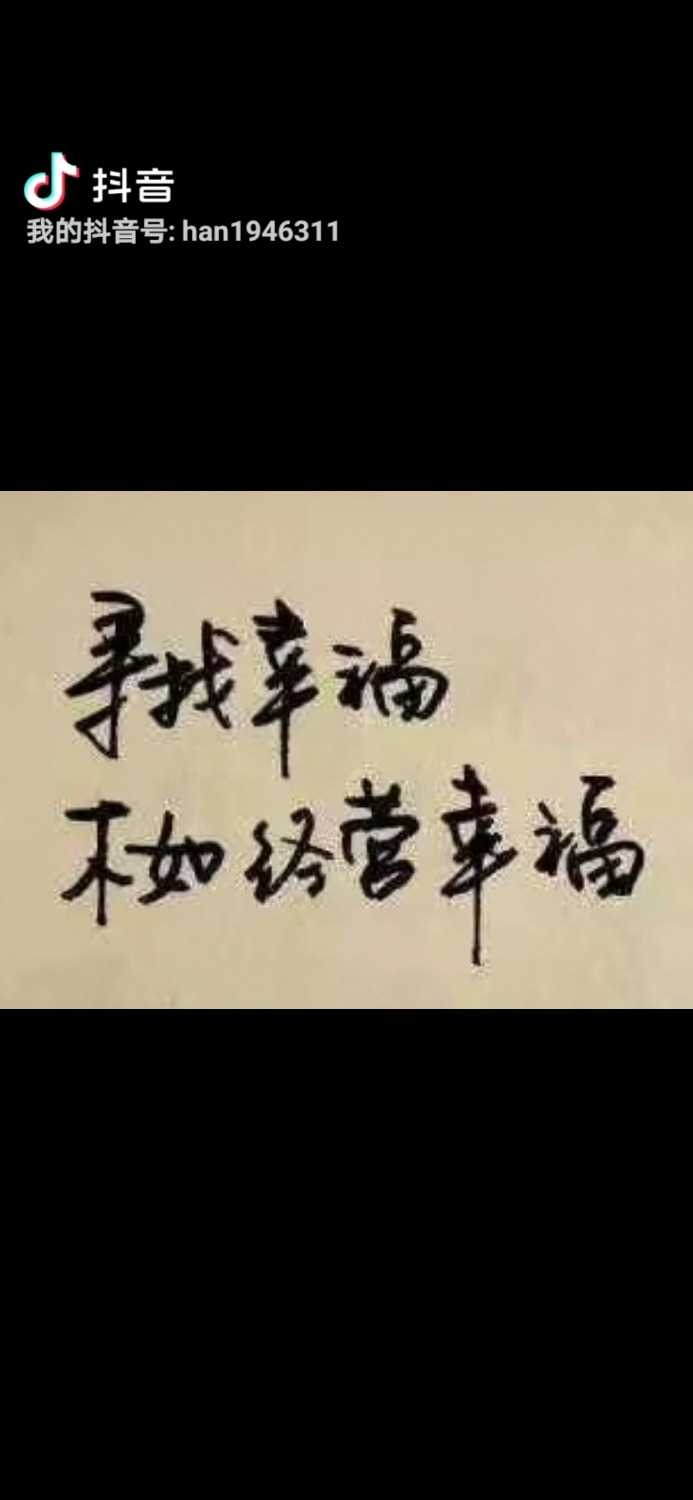 抖音
我的抖音号: han1946311
寻找幸福
不如经营幸福